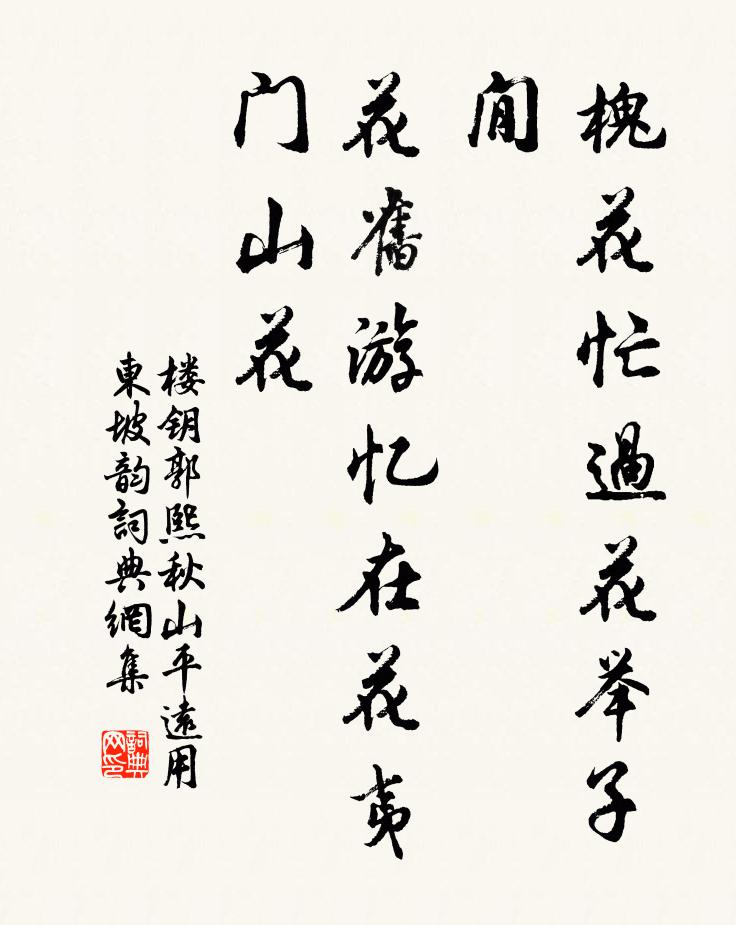 槐花忙過花举子
閒
花舊游忆在花夷
门山花
楼钥郭熙秋山平遠用
東坡韵詞典網集
詞典
网印